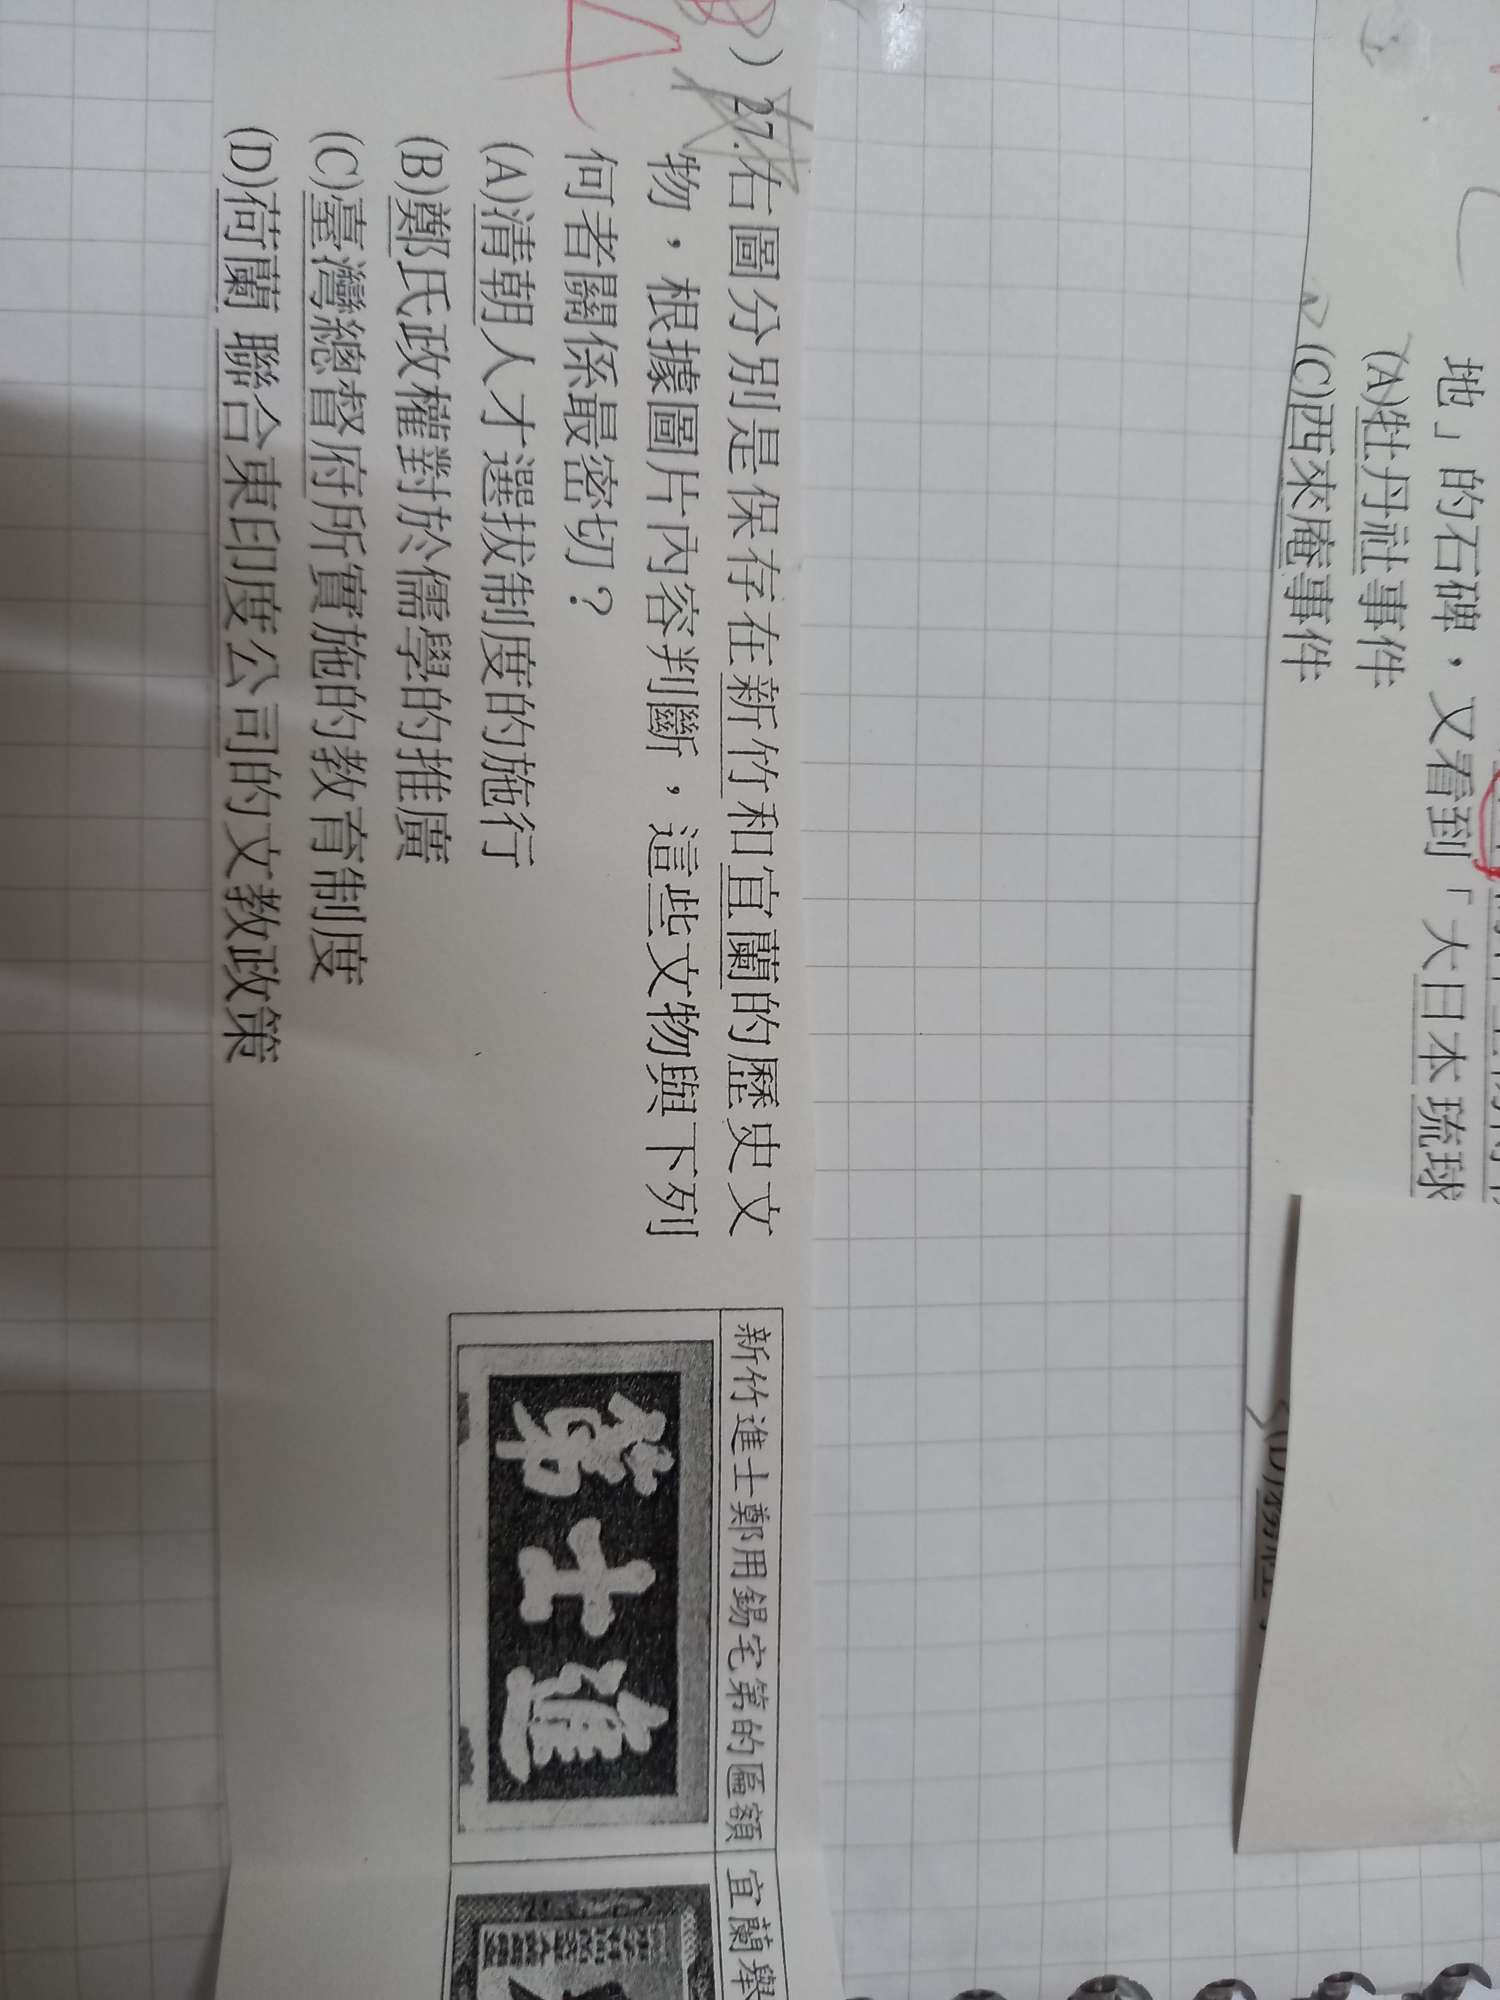 地」的石碑，又看到「大日本琉球
(A)牡丹社事件
(C)西來庵事件
B）27.右圖分別是保存在新竹和宜蘭的歷史文
物，根據圖片內容判斷，這些文物與下列
何者關係最密切？
(A)清朝人才選拔制度的施行
(B)鄭氏政權對於儒學的推廣
(C)臺灣總督府所實施的教育制度
(D)荷蘭 聯合東印度公司的文教政策
新竹進士鄭用錫宅第的匾額
第士進
宜蘭舉